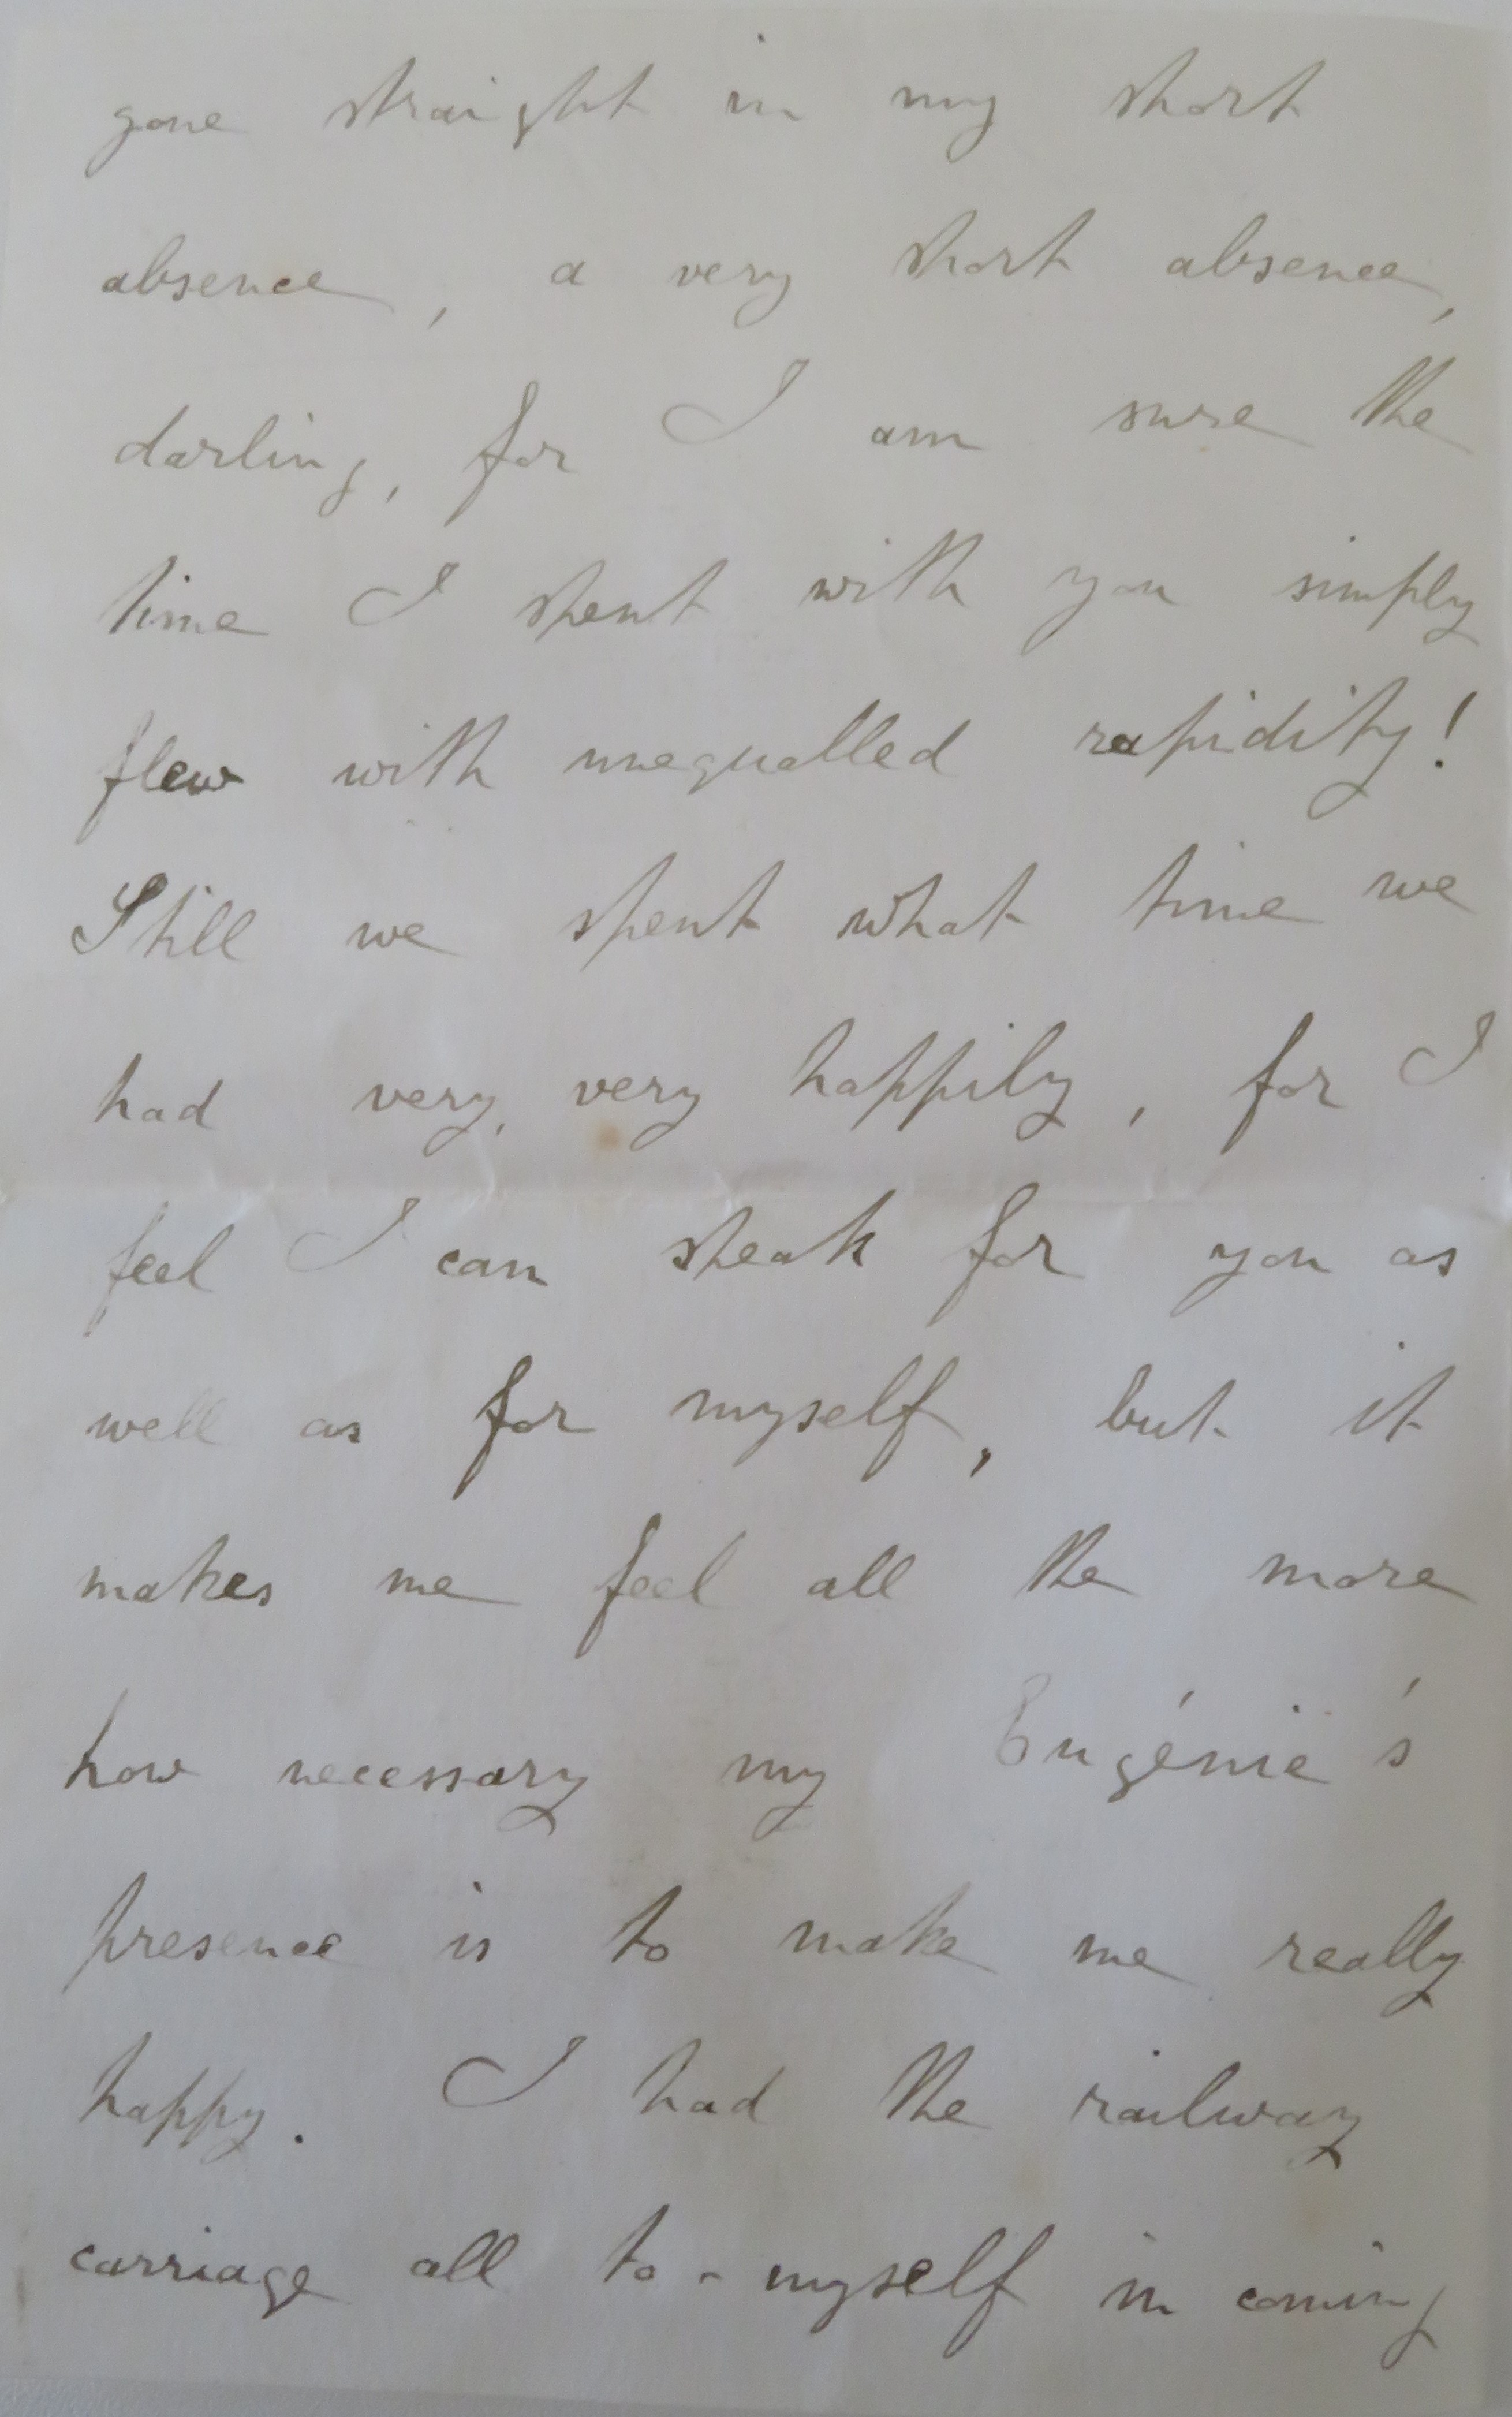 gone straight in my short
absence, a very short absence,
darling, for I am sure the
time I spent with you simply
flew with unequalled rapidity!
Still we spent what time we
had very, very happily, for I
feel I can speak for you as
well as for myself, but it
makes me feel all the more
how necessary my Eugénie's
presence is to make me really
happy. I had the railway
carriage all to-myself in coming